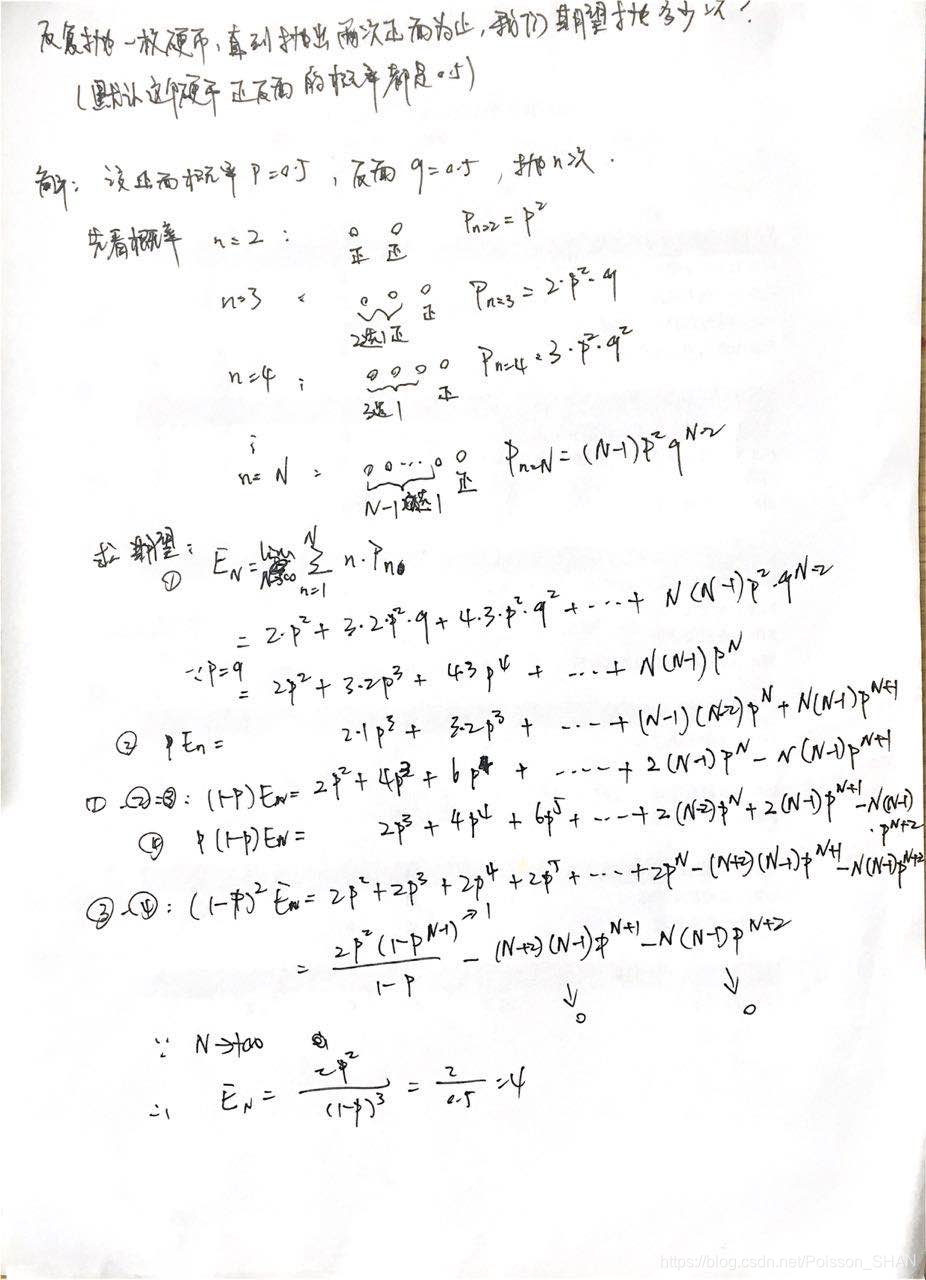 反复抛一枚硬币,直到抛出两次正面为止,我们期望抛多少次?
(默认这个硬币正反面的概率都是0.5)
解: 设正面概率 P=0.5, 反面 q=0.5, 抛n次.
先看概率 n=2: 正 正 P_{n=2}=p^2
n=3 : 2选1正 正 P_{n=3}=2·p^2·q
n=4: 3选1 正 P_{n=4}=3·p^2·q^2
⋮
n=N: ... N-1选1 正 P_{n=N}=(N-1)p^2 q^{N-2}
求期望:
① E_N=\lim_{N→∞} \sum_{n=1}^{N} n·P_n
=2·p^2+3·2·p^2·q+4·3·p^2·q^2+……+N(N-1)p^2·q^{N-2}
∵p=q
=2p^2+3·2p^3+4·3p^4+……+N(N-1)p^N
② pE_n= 2·1p^3+3·2p^3+……+(N-1)(N-2)p^N+N(N-1)p^{N+1}
①-②=③: (1-p)E_N=2p^2+4p^3+6p^4+……+2(N-1)p^N-N(N-1)p^{N+1}
④ p(1-p)E_N= 2p^3+4p^4+6p^5+……+2(N-2)p^N+2(N-1)p^{N+1}-N(N-1)·p^{N+2}
③-④: (1-p)^2 E_N=2p^2+2p^3+2p^4+2p^5+……+2p^N-(N+2)(N-1)p^{N+1}-N(N-1)p^{N+2}
=\frac{2p^2(1-p^{N-1})}{1-p}-(N+2)(N-1)p^{N+1}-N(N-1)p^{N+2}
→1 ↓0 ↓0
∵ N→+∞
∴ E_N=\frac{2p^2}{(1-p)^3}=\frac{2}{0.5}=4
https://blog.csdn.net/Poisson_SHAN